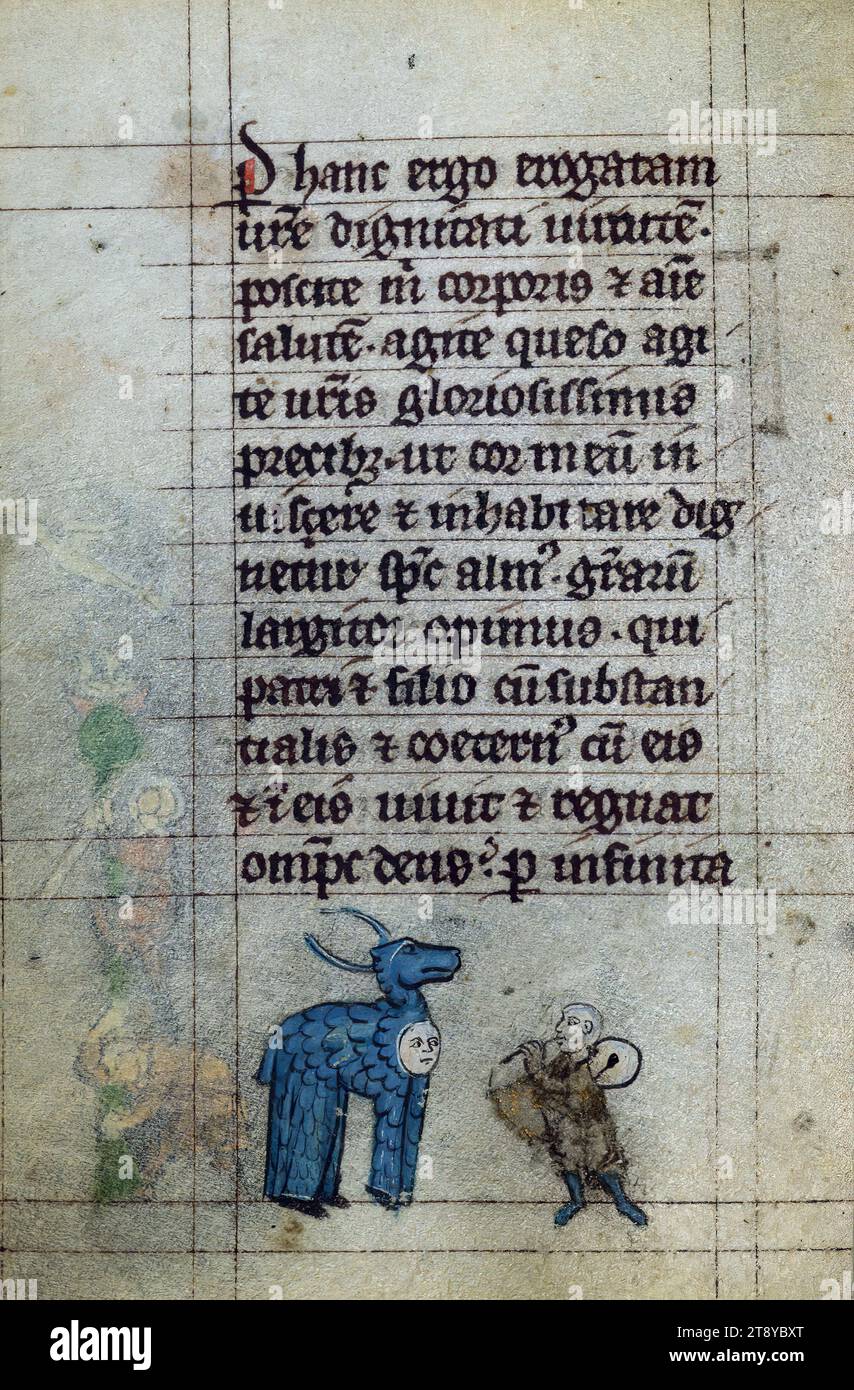 P hanc ergo erogatam
ur̄e dignitati uirtutē.
poscite m̄ corporis ⁊ aīe
salutē. agite queso agi
te ur̄is gloriosissimus
precibꝫ. ut cor meū in
uiscere ⁊ inhabitare dig
netur sp̄c almꝰ. gr̄arū
largitor opimus. qui
patri ⁊ filio cūsubstan
tialis ⁊ coeternꝰ cū eis
⁊ ī eis uiuit ⁊ regnat
om̄pc deus. ꝑ infinita
alamy
alamy
Image ID: 2T8YBXT
www.alamy.com